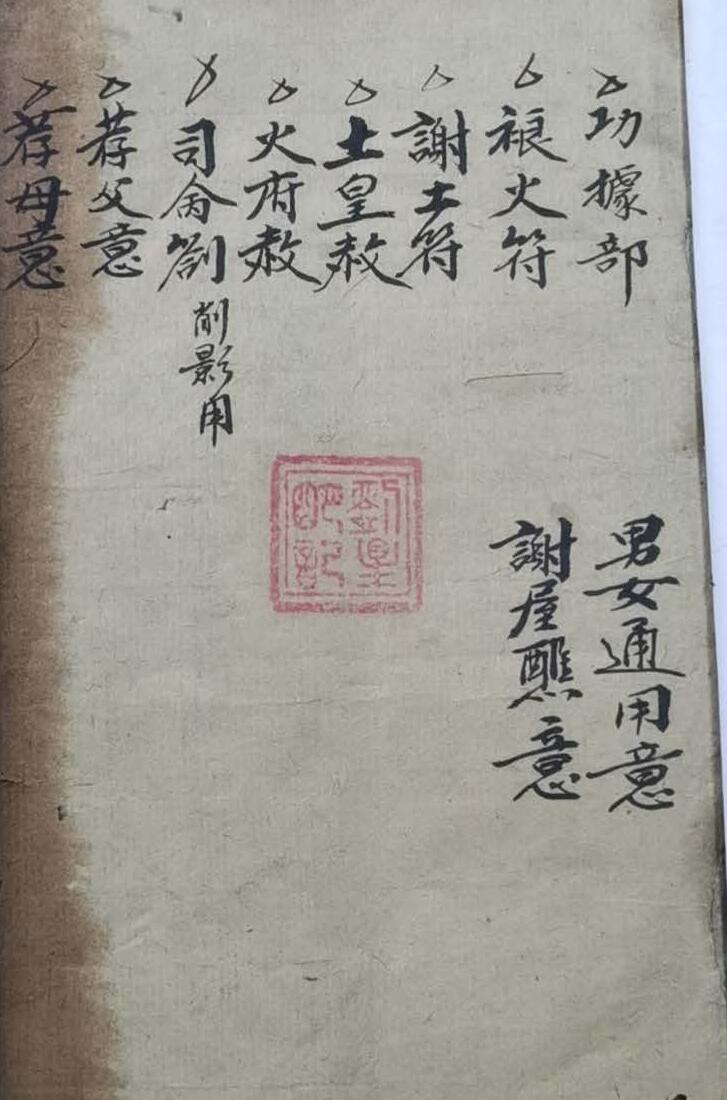 功據部
火符
謝土符
土皇赦
火府赦
司命劄
削影用
荐父意
荐母意
男女通用意
謝屋醮意